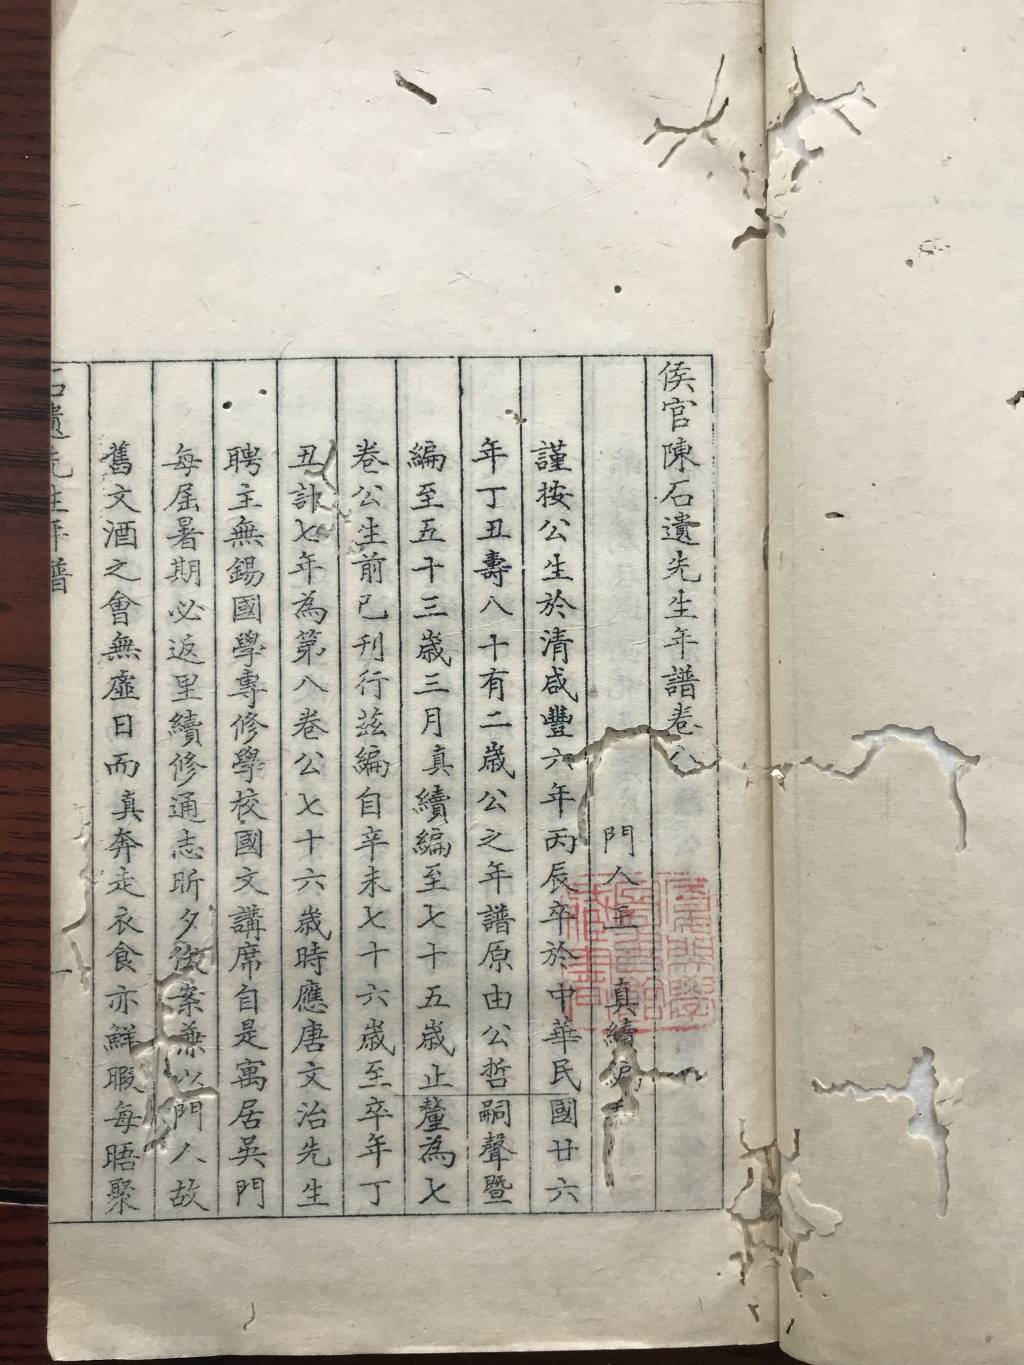 侯官陳石遺先生年譜卷八
門人王 真續編
謹按公生於清咸豐六年丙辰卒於中華民國廿六
年丁丑壽八十有二歲公之年譜原由公哲嗣聲暨
編至五十三歲三月真續編至七十五歲止釐為七
卷公生前已刊行茲編自辛未七十六歲至卒年丁
丑訃七年為第八卷公七十六歲時應唐文治先生
聘主無錫國學專修學校國文講席自是寓居吳門
每屆暑期必返里續修通志昕夕 案兼以門人故
舊文酒之會無虛日而真奔走衣食亦鮮暇每晤聚
石遺先生年譜
一